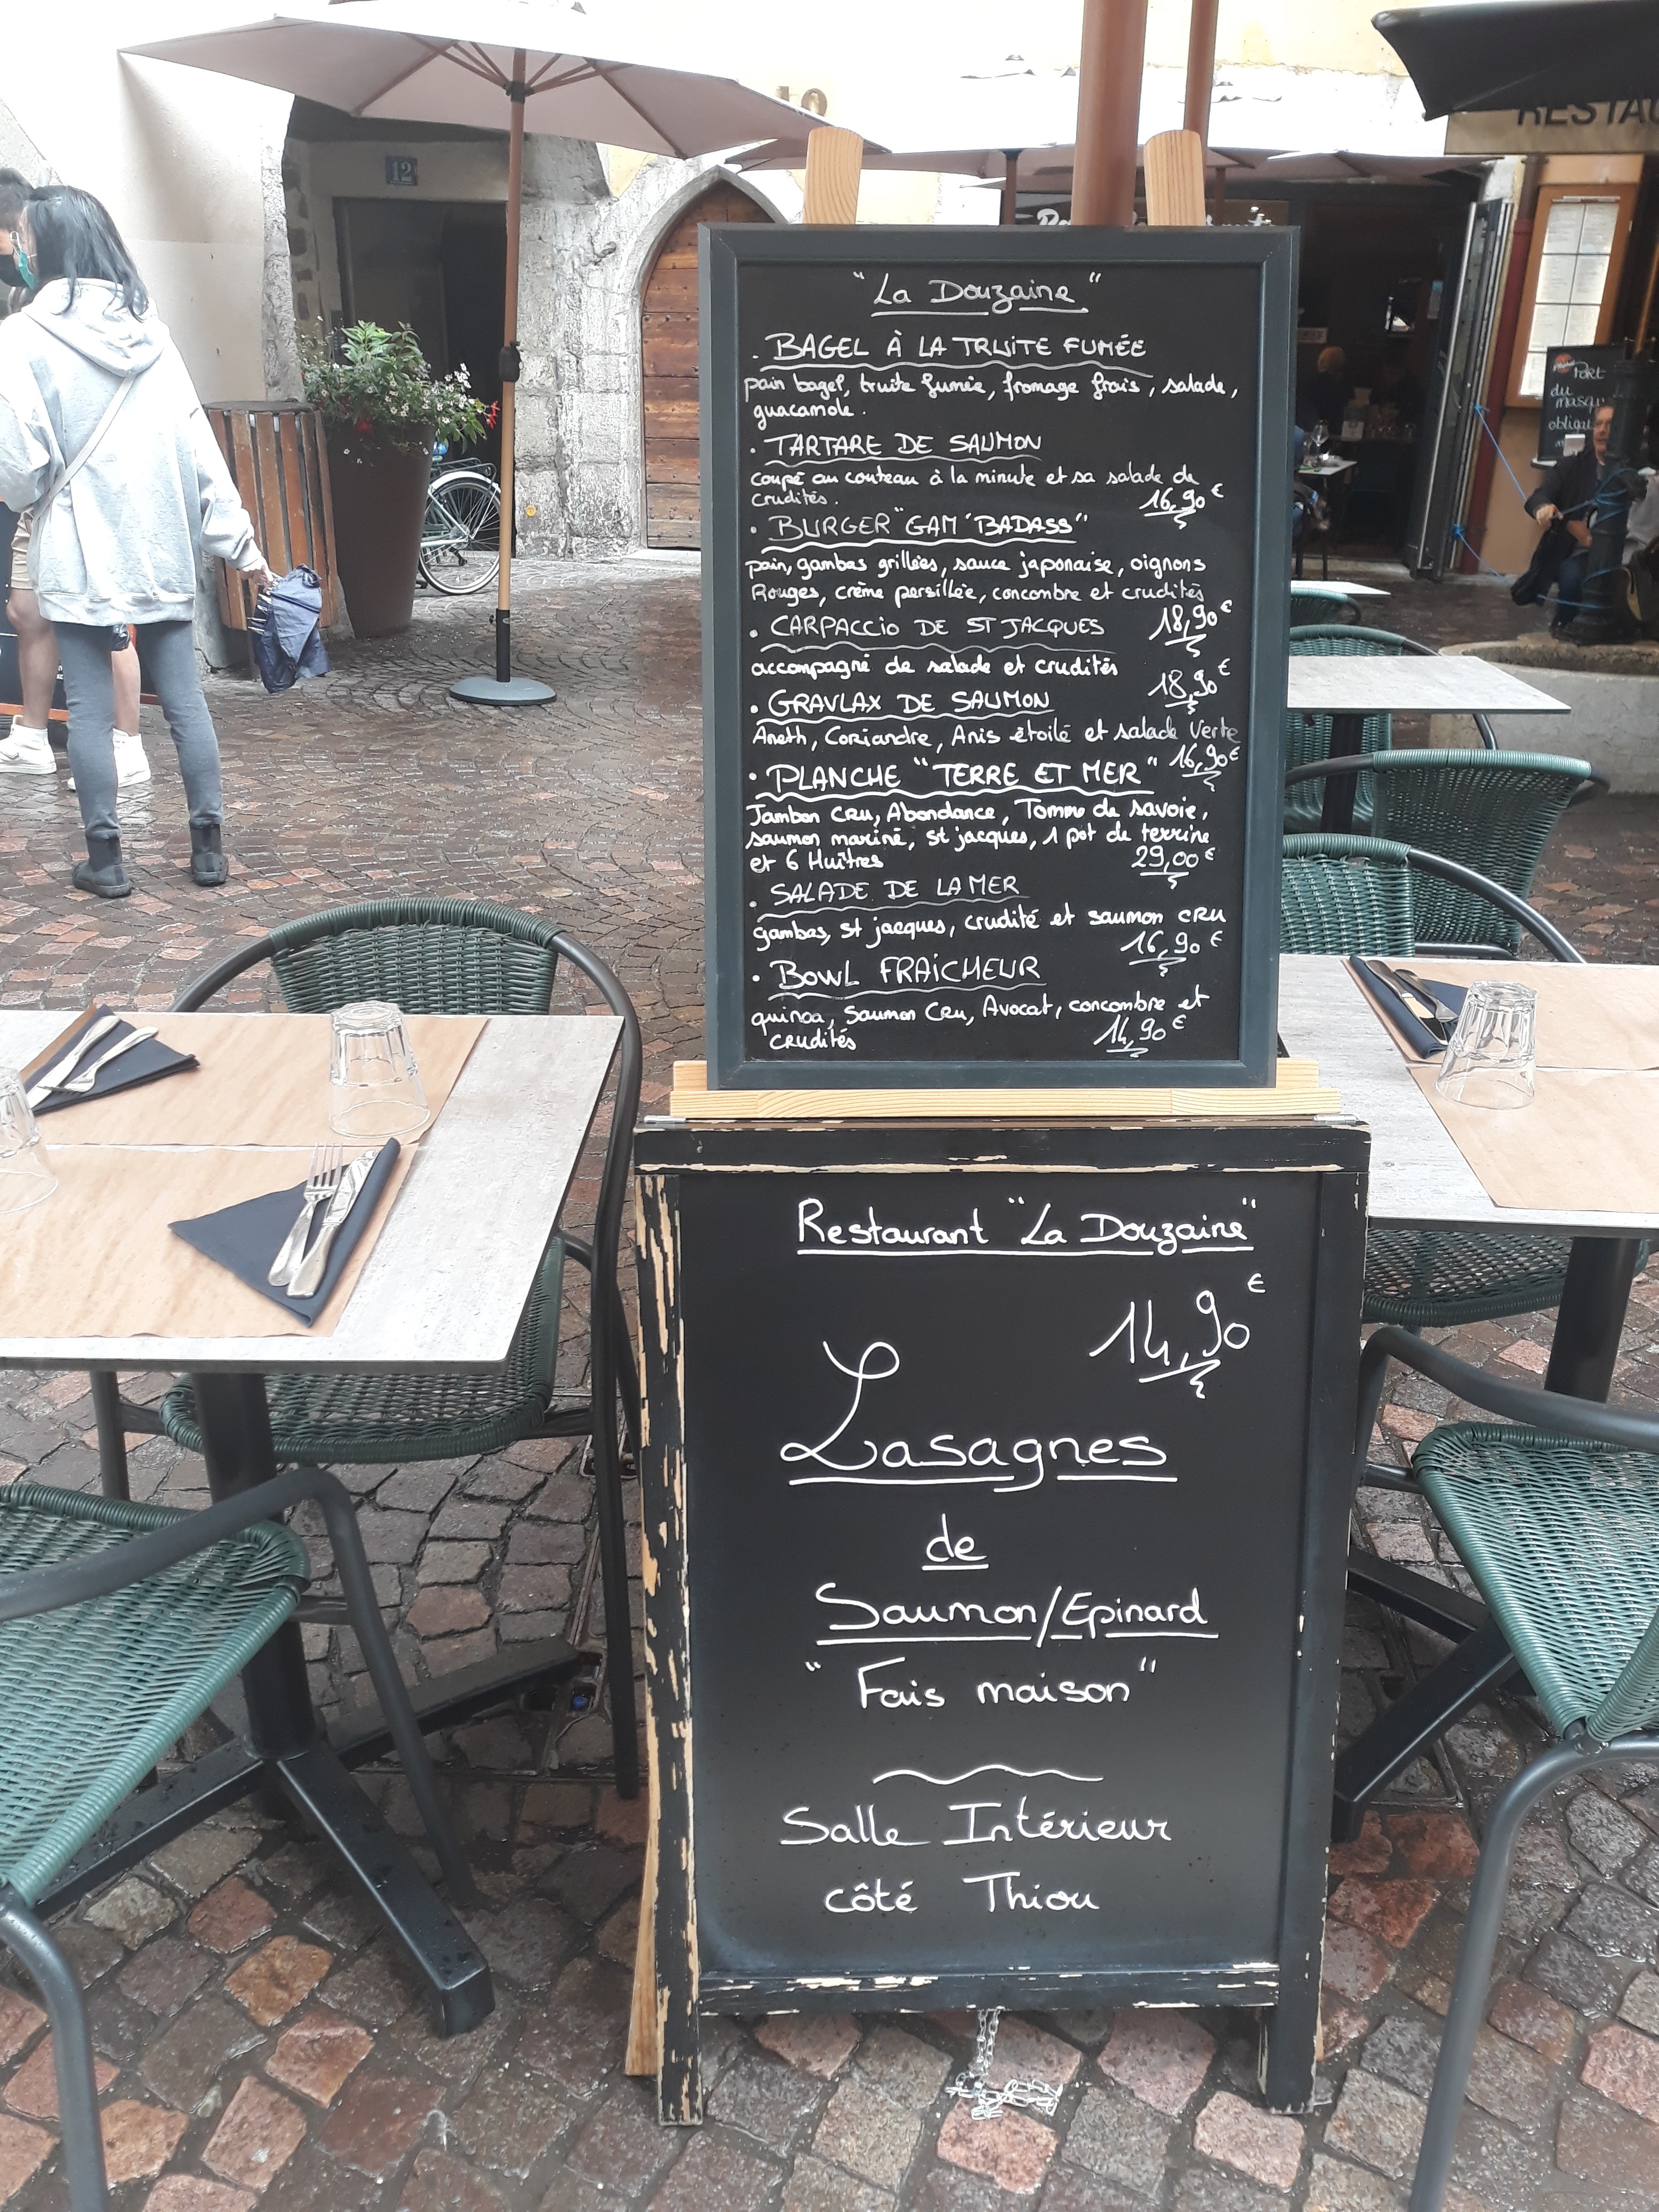 12
RESTAU
"La Douzaine"
. BAGEL À LA TRUITE FUMÉE
pain bagel, truite fumée, fromage frais, salade,
guacamole.
. TARTARE DE SAUMON
coupé au couteau à la minute et sa salade de
crudités. 16,90€
. BURGER "GAM'BADASS"
pain, gambas grillées, sauce japonaise, oignons
Rouges, crème persillée, concombre et crudités
18,90€
. CARPACCIO DE ST JACQUES
accompagné de salade et crudités
18,90€
. GRAVLAX DE SAUMON
Aneth, Coriandre, Anis étoilé et salade Verte
16,90€
. PLANCHE "TERRE ET MER"
Jambon Cru, Abondance, Tomme de savoie,
saumon mariné, St jacques, 1 pot de terrine
et 6 Huîtres 29,00€
. SALADE DE LA MER
Gambas, St jacques, crudité et saumon CRU
16,90€
. BOWL FRAICHEUR
quinoa, Saumon Cru, Avocat, concombre et
crudités 14,90€
Port
du
masqu
obligat
Restaurant "La Douzaine"
14,90€
Lasagnes
de
Saumon/Epinard
"Fais maison"
Salle Intérieur
côté Thiou